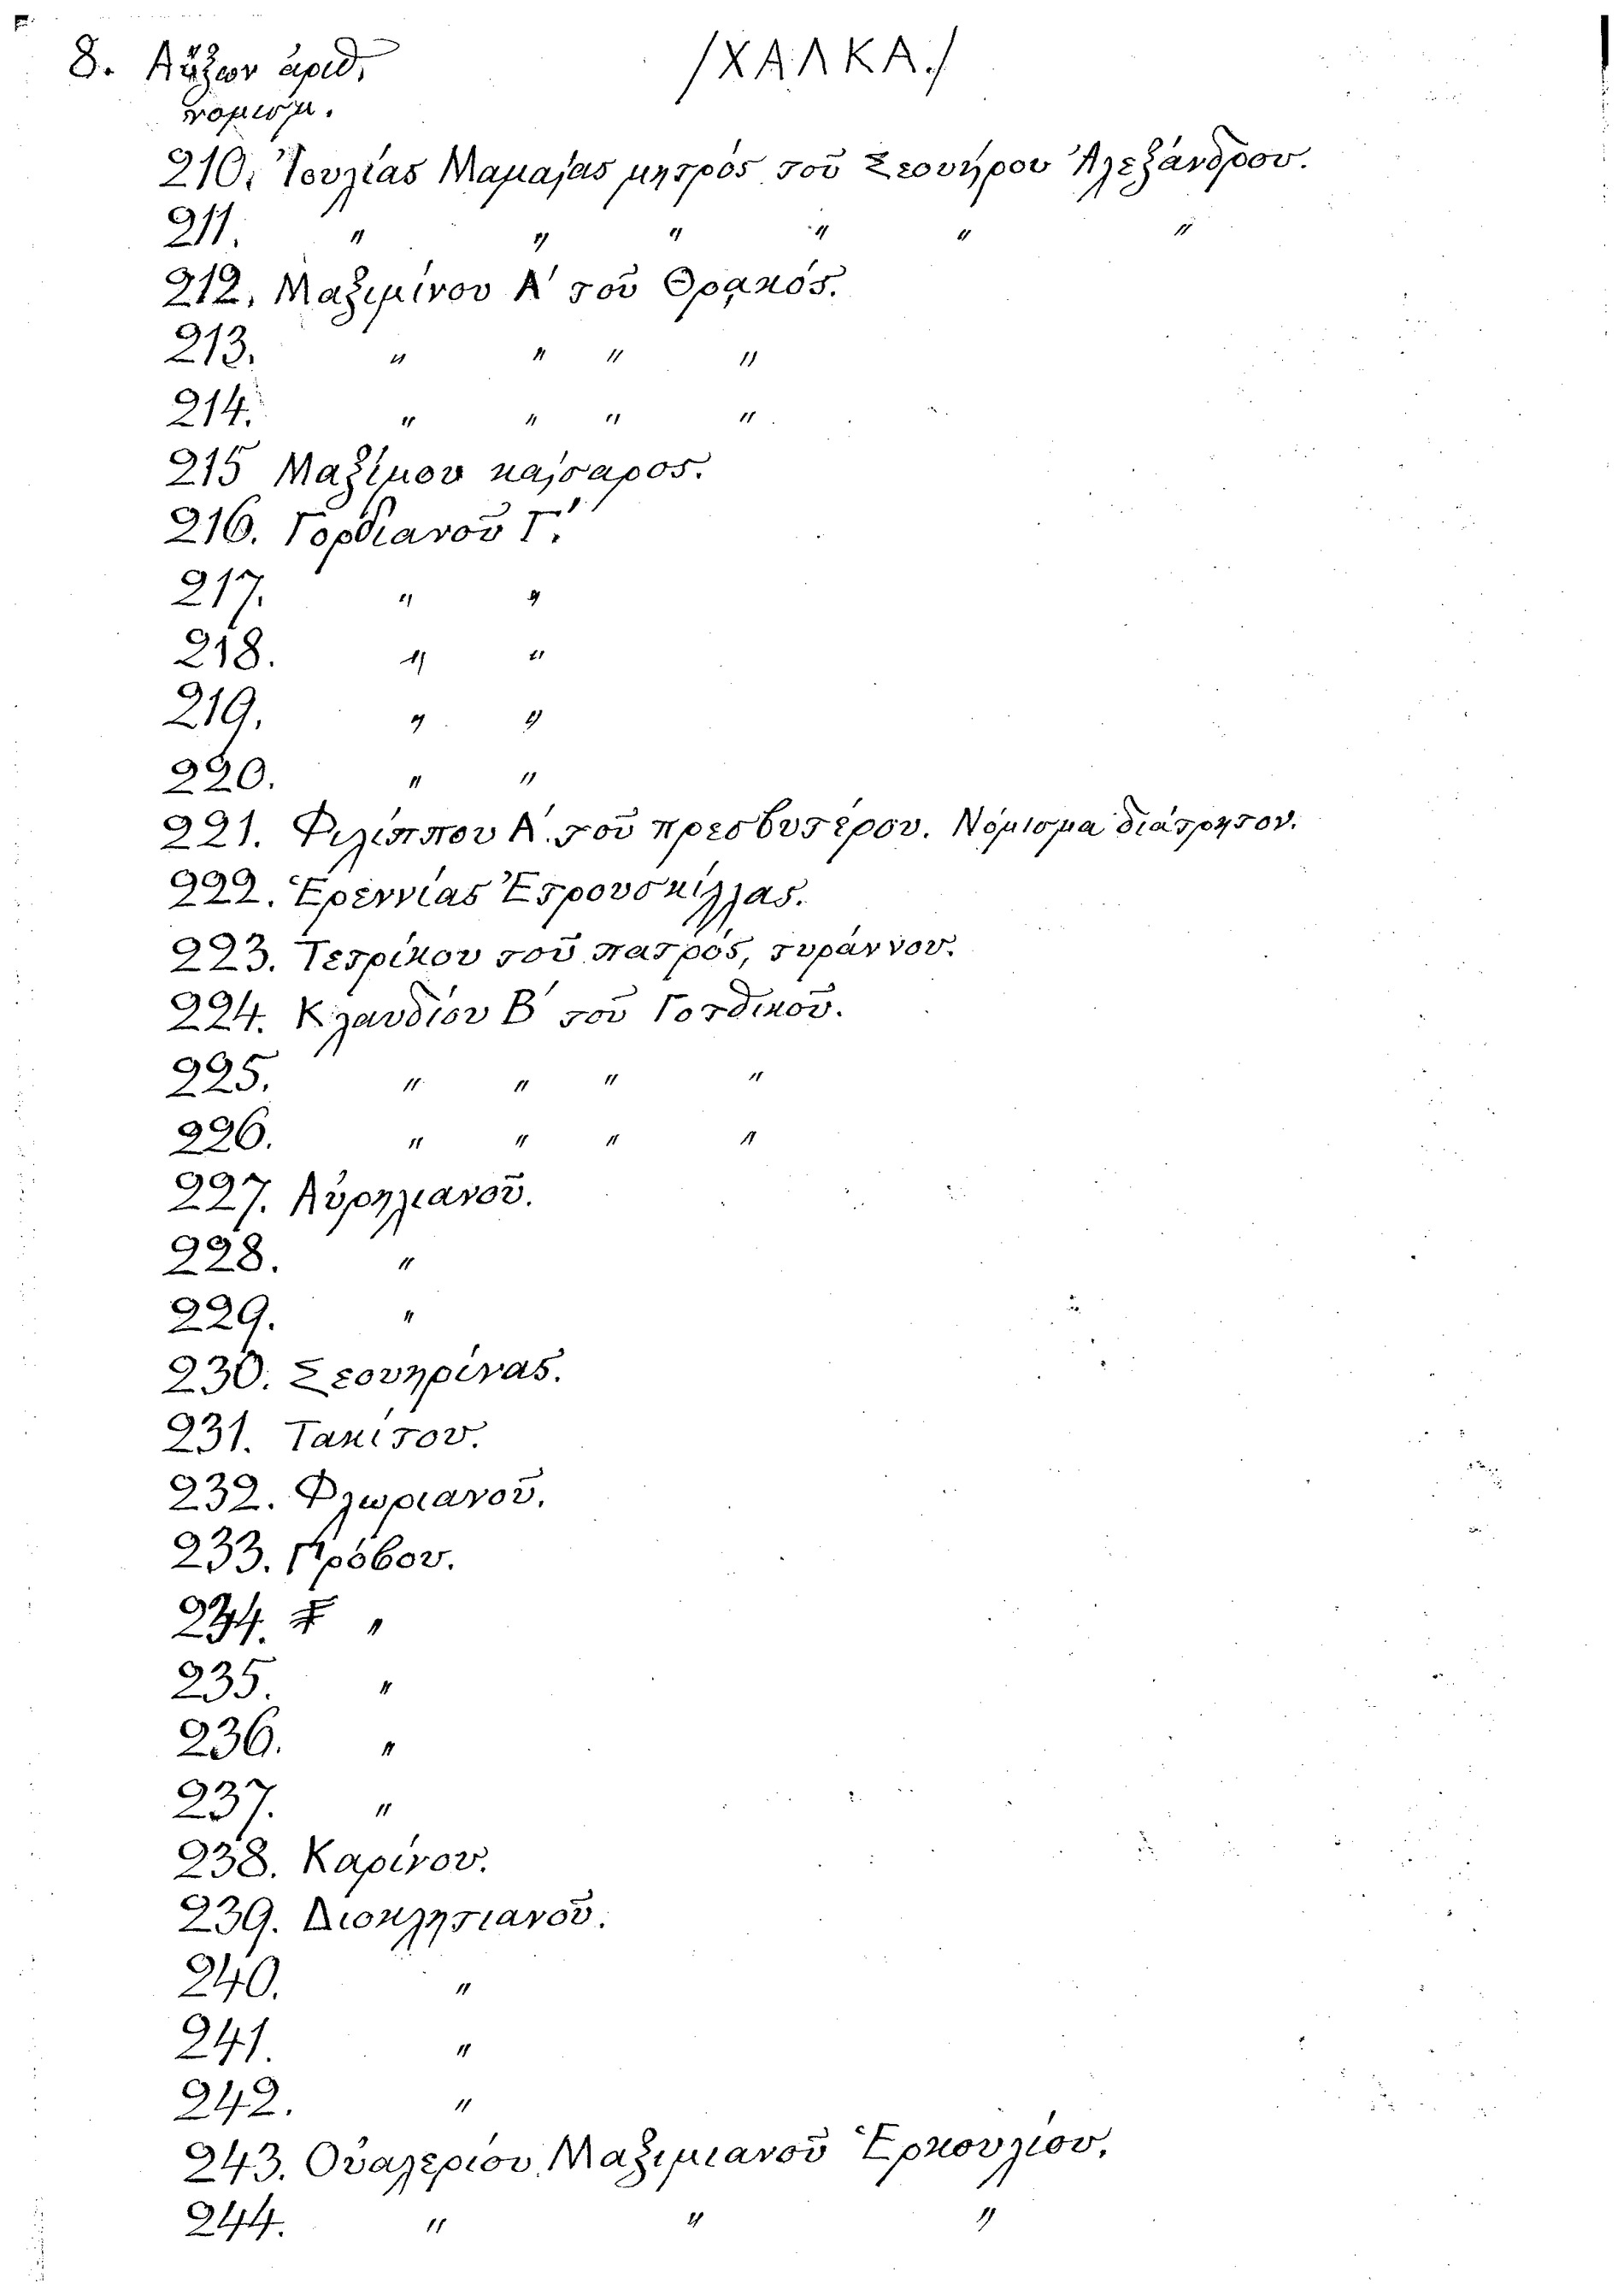 8. Αὔξων ἀριθ. /ΧΑΛΚΑ./
νομισμ.
210. Ἰουλίας Μαμαίας μητρὸς τοῦ Σεουήρου Ἀλεξάνδρου.
211. " " " " " "
212. Μαξιμίνου Α' τοῦ Θρᾳκός.
213. " " " "
214. " " " "
215 Μαξίμου καίσαρος.
216. Γορδιανοῦ Γ'.
217. " "
218. " "
219. " "
220. " "
221. Φιλίππου Α'. τοῦ πρεσβυτέρου. Νόμισμα διάτρητον.
222. Ἑρεννίας Ἐτρουσκίλλας.
223. Τετρίκου τοῦ πατρός, τυράννου.
224. Κλαυδίου Β' τοῦ Γοτθικοῦ.
225. " " " "
226. " " " "
227. Αὐρηλιανοῦ.
228. "
229. "
230. Σεουηρίνας.
231. Τακίτου.
232. Φλωριανοῦ.
233. Πρόβου.
234. "
235. "
236. "
237. "
238. Καρίνου.
239. Διοκλητιανοῦ.
240. "
241. "
242. "
243. Οὐαλερίου Μαξιμιανοῦ Ἑρκουλίου.
244. " " "